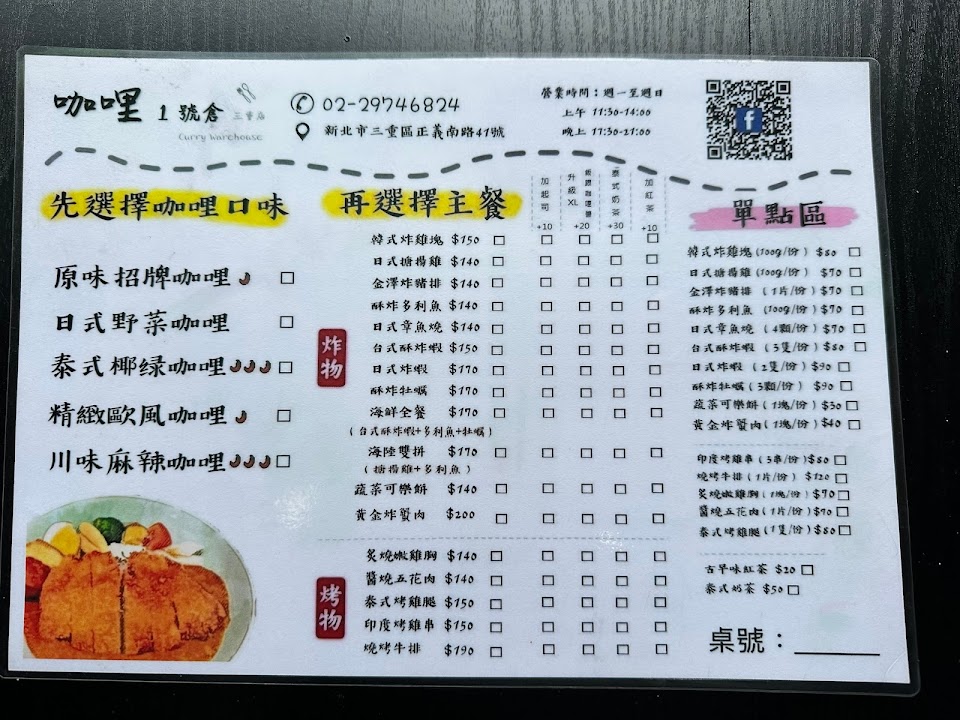 咖哩 1 號倉 三重店
Curry Warehouse
02-29746824
新北市三重區正義南路41號
營業時間：週一至週日
上午 11:30-14:00
晚上 17:30-21:00
先選擇咖哩口味
原味招牌咖哩
日式野菜咖哩
泰式椰绿咖哩
精緻歐風咖哩
川味麻辣咖哩
再選擇主餐
加起司 +10
升級XL +20
泰式奶茶 +30
加紅茶 +10
炸物
韓式炸雞塊 $150
日式搪揚雞 $140
金澤炸豬排 $140
酥炸多利魚 $140
日式章魚燒 $140
台式酥炸蝦 $150
日式炸蝦 $170
酥炸牡蠣 $170
海鮮全餐 $170
(台式酥炸蝦+多利魚+牡蠣)
海陸雙拼 $170
(搪揚雞+多利魚)
蔬菜可樂餅 $140
黃金炸蟹肉 $200
烤物
炙燒嫩雞胸 $140
醬燒五花肉 $140
泰式烤雞腿 $150
印度烤雞串 $150
燒烤牛排 $190
單點區
韓式炸雞塊 (100g/份) $80
日式搪揚雞 (100g/份) $70
金澤炸豬排 (1片/份) $70
酥炸多利魚 (100g/份) $70
日式章魚燒 (4顆/份) $70
台式酥炸蝦 (3隻/份) $80
日式炸蝦 (2隻/份) $90
酥炸牡蠣 (3顆/份) $90
蔬菜可樂餅 (1塊/份) $30
黃金炸蟹肉 (1塊/份) $40
印度烤雞串 (3串/份) $80
燒烤牛排 (1片/份) $120
炙燒嫩雞胸 (1塊/份) $70
醬燒五花肉 (1片/份) $70
泰式烤雞腿 (1隻/份) $80
古早味紅茶 $20
泰式奶茶 $50
桌號：